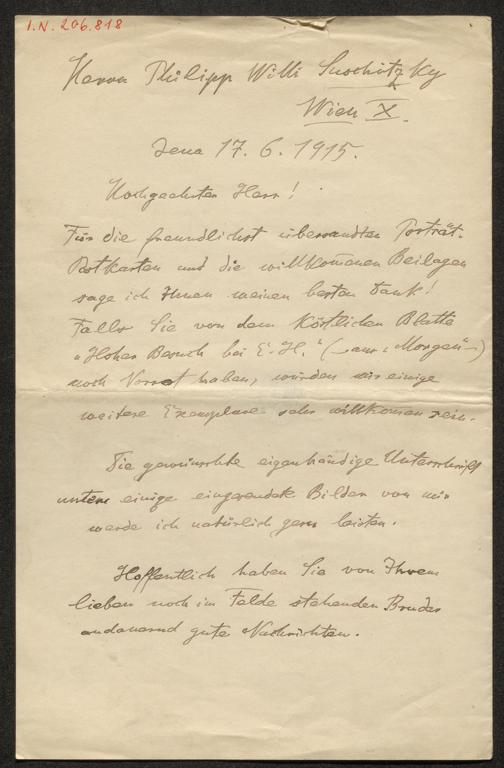 I.N. 206.818
Herrn Philipp Willi Suschitzky
Wien X.
Jena 17. 6. 1915.
Hochgeehrter Herr!
Für die freundlichst übersandten Porträt-
Postkarten und die willkommenen Beilagen
sage ich Ihnen meinen besten Dank!
Falls Sie von dem köstlichen Blatte
"Hoher Besuch bei E. H." ( aus: "Morgen" )
noch Vorrat haben, würden mir einige
weitere Exemplare sehr willkommen sein.
Die gewünschte eigenhändige Unterschrift
unter einige eingesendete Bilder von mir
werde ich natürlich gern leisten.
Hoffentlich haben Sie von Ihrem
lieben noch im Felde stehenden Bruder
andauernd gute Nachrichten.